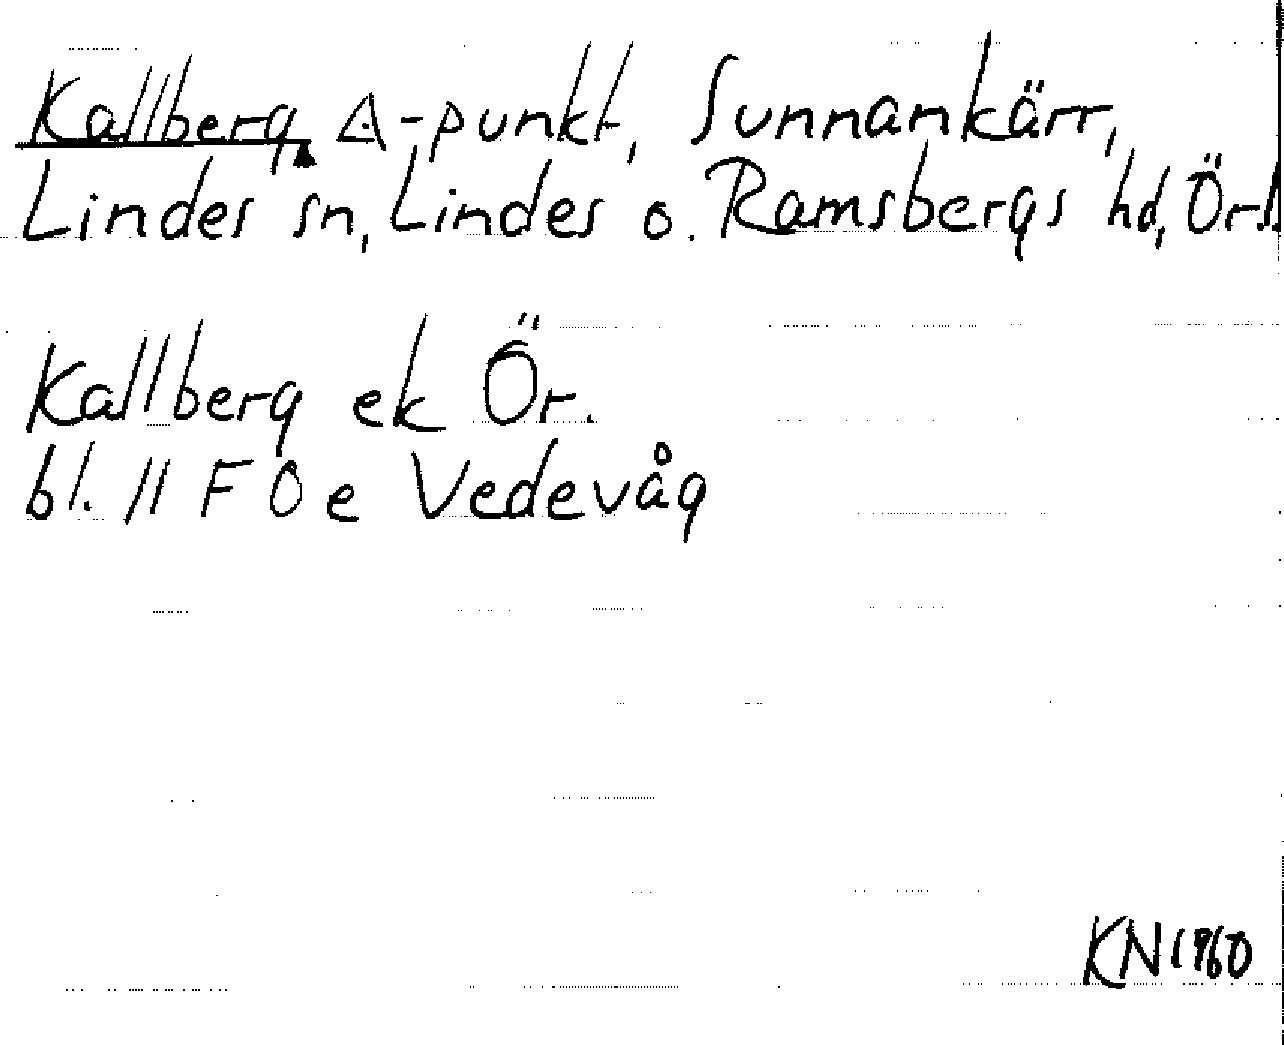 Kallberg, △-punkt, Sunnankärr,
Lindes sn, Lindes o. Ramsbergs hd, Örl.
Kallberg ek Ör.
bl. 11 F 0 e Vedevåg
KN 1960